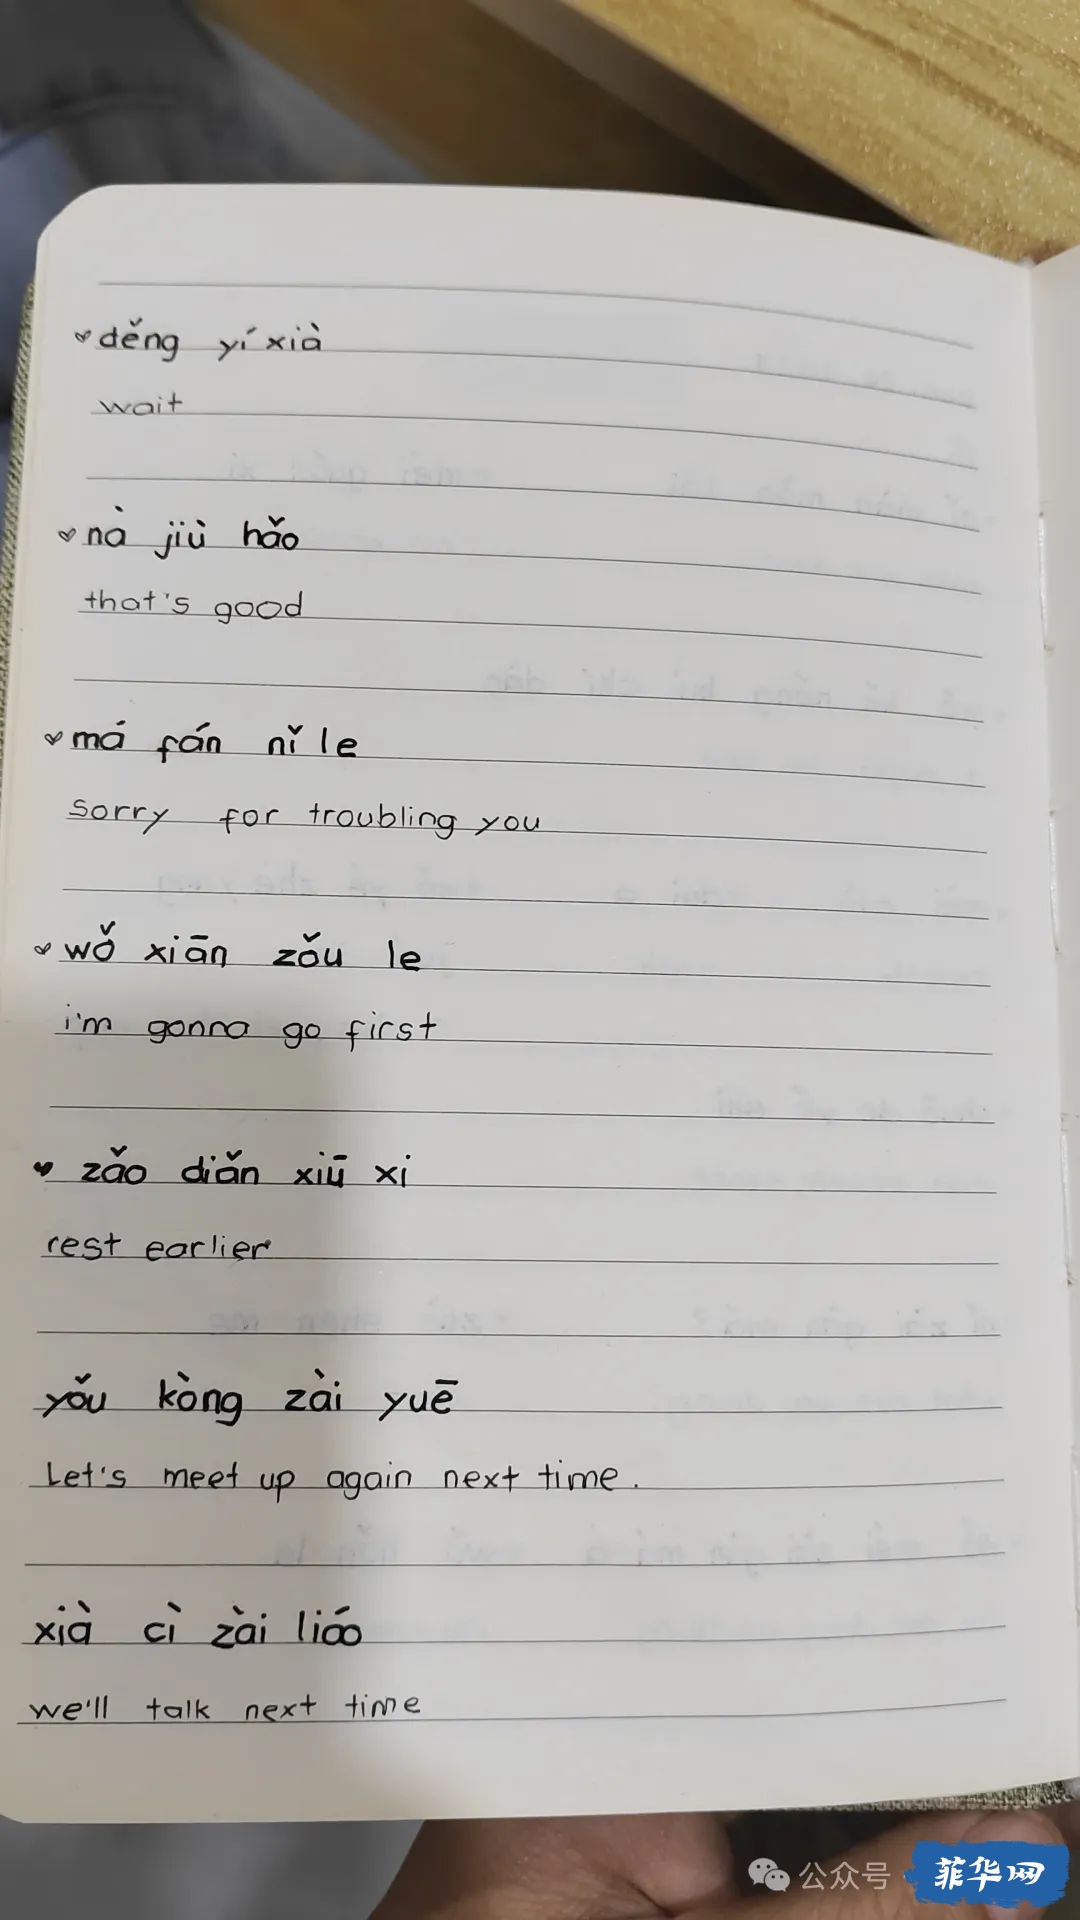 děng yí xià
wait
nà jiù hǎo
that's good
má fán nǐ le
sorry for troubling you
wǒ xiān zǒu le
i'm gonna go first
zǎo diǎn xiū xi
rest earlier
yǒu kòng zài yuē
Let's meet up again next time.
xià cì zài liáo
we'll talk next time
公众号 · 菲华网